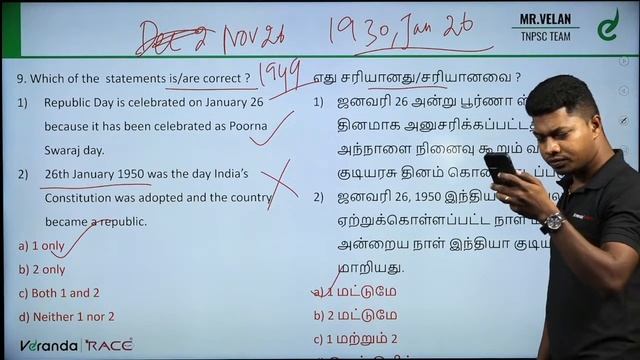 Dec 2 Nov 26
1930, Jan 26
MR.VELAN
TNPSC TEAM
1949
9. Which of the statements is/are correct ?
1) Republic Day is celebrated on January 26
because it has been celebrated as Poorna
Swaraj day.
2) 26th January 1950 was the day India's
Constitution was adopted and the country
became a republic.
a) 1 only
b) 2 only
c) Both 1 and 2
d) Neither 1 nor 2
எது சரியானது/சரியானவை ?
1) ஜனவரி 26 அன்று பூர்ணா
தினமாக அனுசரிக்கப்பட்ட
அந்நாளை நினைவு கூறும்
குடியரசு தினம்
2) ஜனவரி 26, 1950
ஏற்றுக்கொள்ளப்பட்ட நாள்
அன்றைய நாள் இந்தியா
மாறியது.
a) 1 மட்டுமே
b) 2 மட்டுமே
c) 1 மற்றும் 2
Veranda RACE